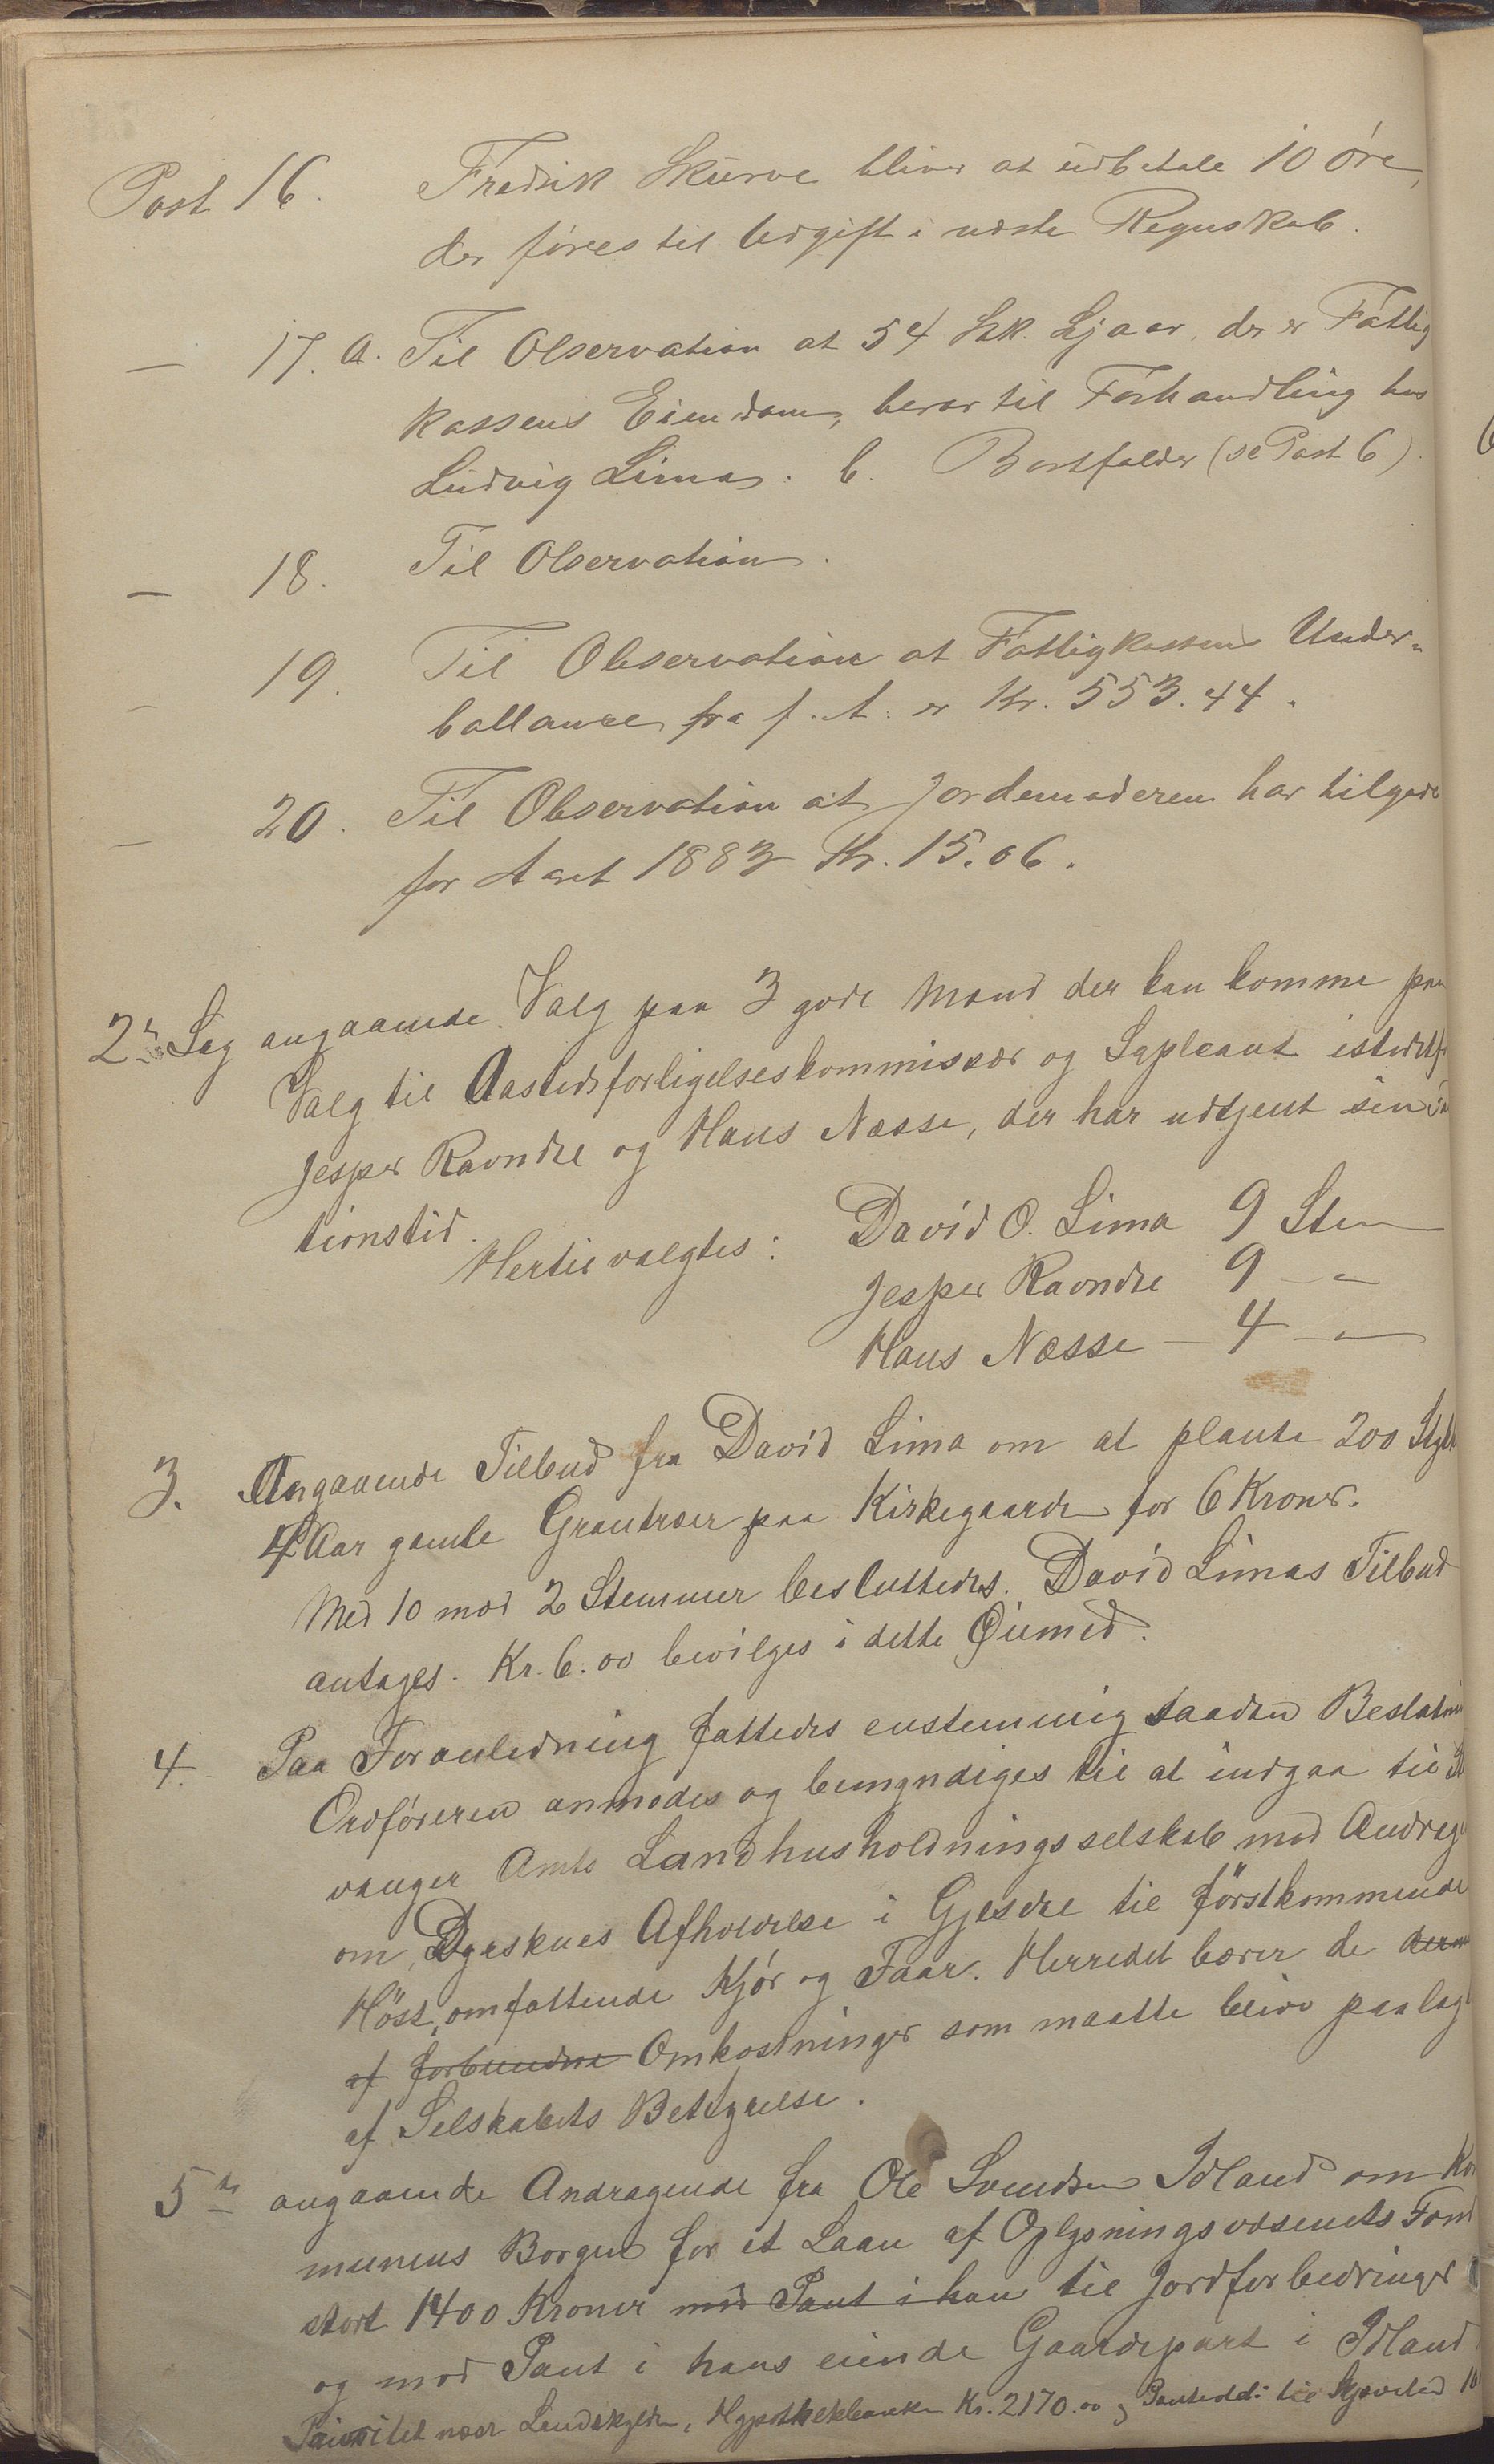 Post 16. Fredrik Skurve bliver at udbetale 10 Øre,
der føres til Udgift i næste Regnskab.
— 17. a. Til Observation at 54 Stk. Ljaar, der er Fattig
kassens Eiendom, beror til Forhandling hos
Ludvig Lima. b. Bortfalder (se Post 6).
— 18. Til Observation.
— 19. Til Observation at Fattigkassens Under-
ballance fra f. A. er Kr. 553.44.
— 20. Til Observation at Jordemoderen har tilgode
for Aaret 1883 Kr. 15.06.
2n Sag angaaende Valg paa 3 gode Mænd der kan komme paa
Valg til Aastedsforligelseskommissær og Supleant istedetf
Jesper Ravndal og Hans Næsse, der har udtjent sin
tionstid.
Hertil valgtes: David O. Lima 9 Stem
Jesper Ravndal 9 — " —
Hans Næsse — 4 — " —
3. Angaaende Tilbud fra David Lima om at plante 200 Styk
4 Aar gamle Grantræer paa Kirkegaarden for 6 Kroner.
Med 10 mod 2 Stemmer besluttedes. David Limas Tilbud
antages. Kr. 6.00 bevilges i dette Øiemed.
4. Paa Foranledning fattedes enstemmig saadan Beslutni
Ordføreren anmodes og bemyndiges til at indgaa til
vanger Amts Landhusholdningsselskab med Andrag
om Dyrskues Afholdelse i Gjesdal til førstkommende
Høst, omfattende Kjør og Faar. Herredet bærer de
af forbundne Omkostninger som maatte blive paalag
af Selskabets Bestyrelse.
5te angaaende Andragende fra Ole Svendsen Idland om Kom
munens Borgen for et Laan af Oplysningsvæsenets Fond
stort 1400 Kroner mod Pant i han til Jordforbedringer
og mod Pant i hans eiende Gaardepart i Idland
Prioritet næst Landskylden, Hypothekbanken Kr. 2170.00 og